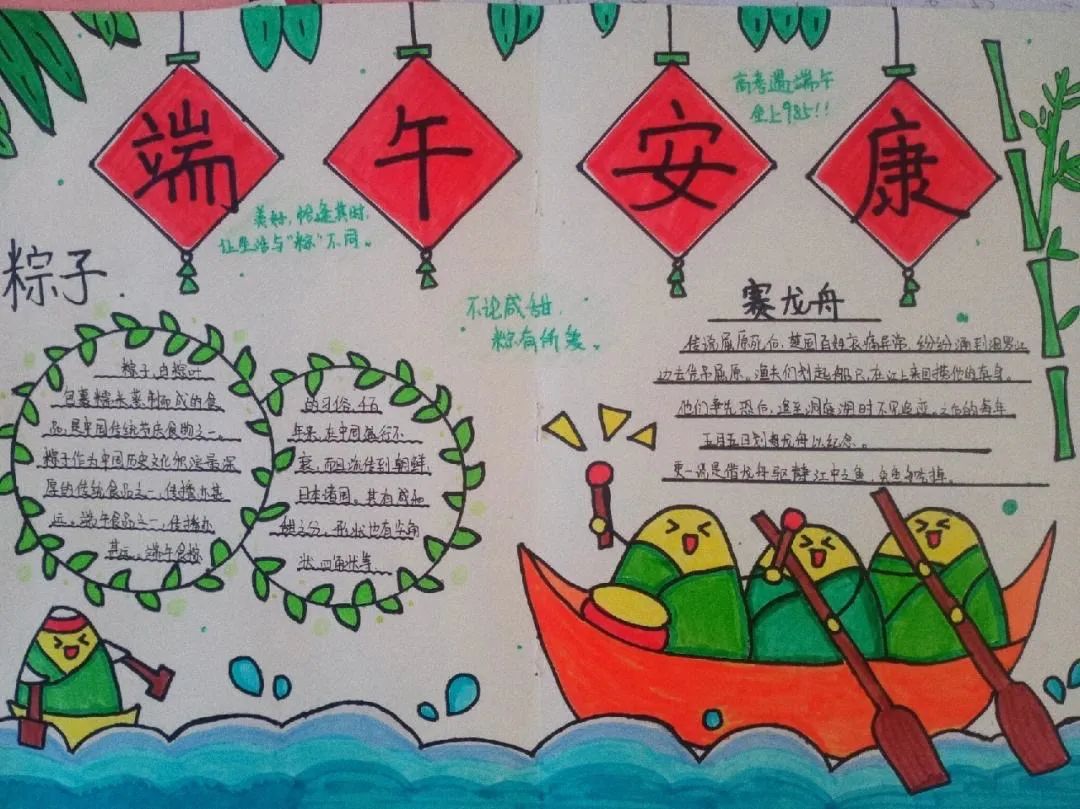 端午安康
高考遇端午
坐上985!!
美好,恰逢其时,
让生活与"粽"不同。
粽子
不论咸甜,
粽有所爱。
赛龙舟
粽子,由粽叶
包裹糯米蒸制而成的食
品,是中国传统节庆食物之一。
粽子作为中国历史文化积淀最深
厚的传统食品之一,传播亦甚
远。端午食品之一,传播亦
甚远。端午食粽
的习俗,千百
年来,在中国盛行不
衰,而且流传到朝鲜
日本诸国。其有咸和
甜之分,形状也有尖角
状、四角状等
传说屈原死后,楚国百姓哀痛异常,纷纷涌到汨罗江
边去凭吊屈原。渔夫们划起船只,在江上来回捞他的真身。
他们争先恐后,追至洞庭湖时不见踪迹。之后的每年
五月五日划龙舟以纪念。
更一说是借龙舟驱散江中之鱼,免鱼吃掉。